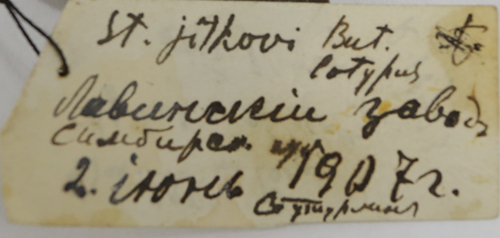 St. jitkovi But.
Cotypus
Лавинскiй заводъ
Симбирск. губ.
2. iюнь 1907 г.